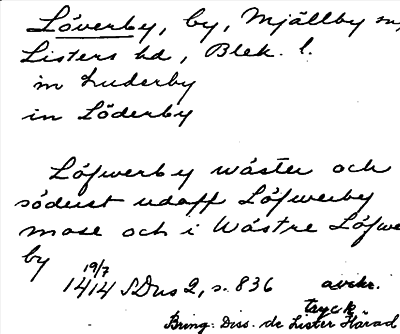 Löverby, by, Mjällby sn,
Listers hd, Blek. l.
in Luderby
in Löderby
Löfwerby wäster och
söderst udaff Löfwerby
mose och i Wästre Löfwe
by
19/7
1414 SDns 2, s. 836 avskr.
tryck
Bring: Diss. de Lister Härad